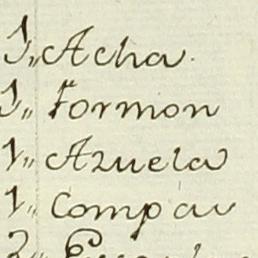 1,, Acha.
1,, Formon
1,, Azuela
1,, Compas